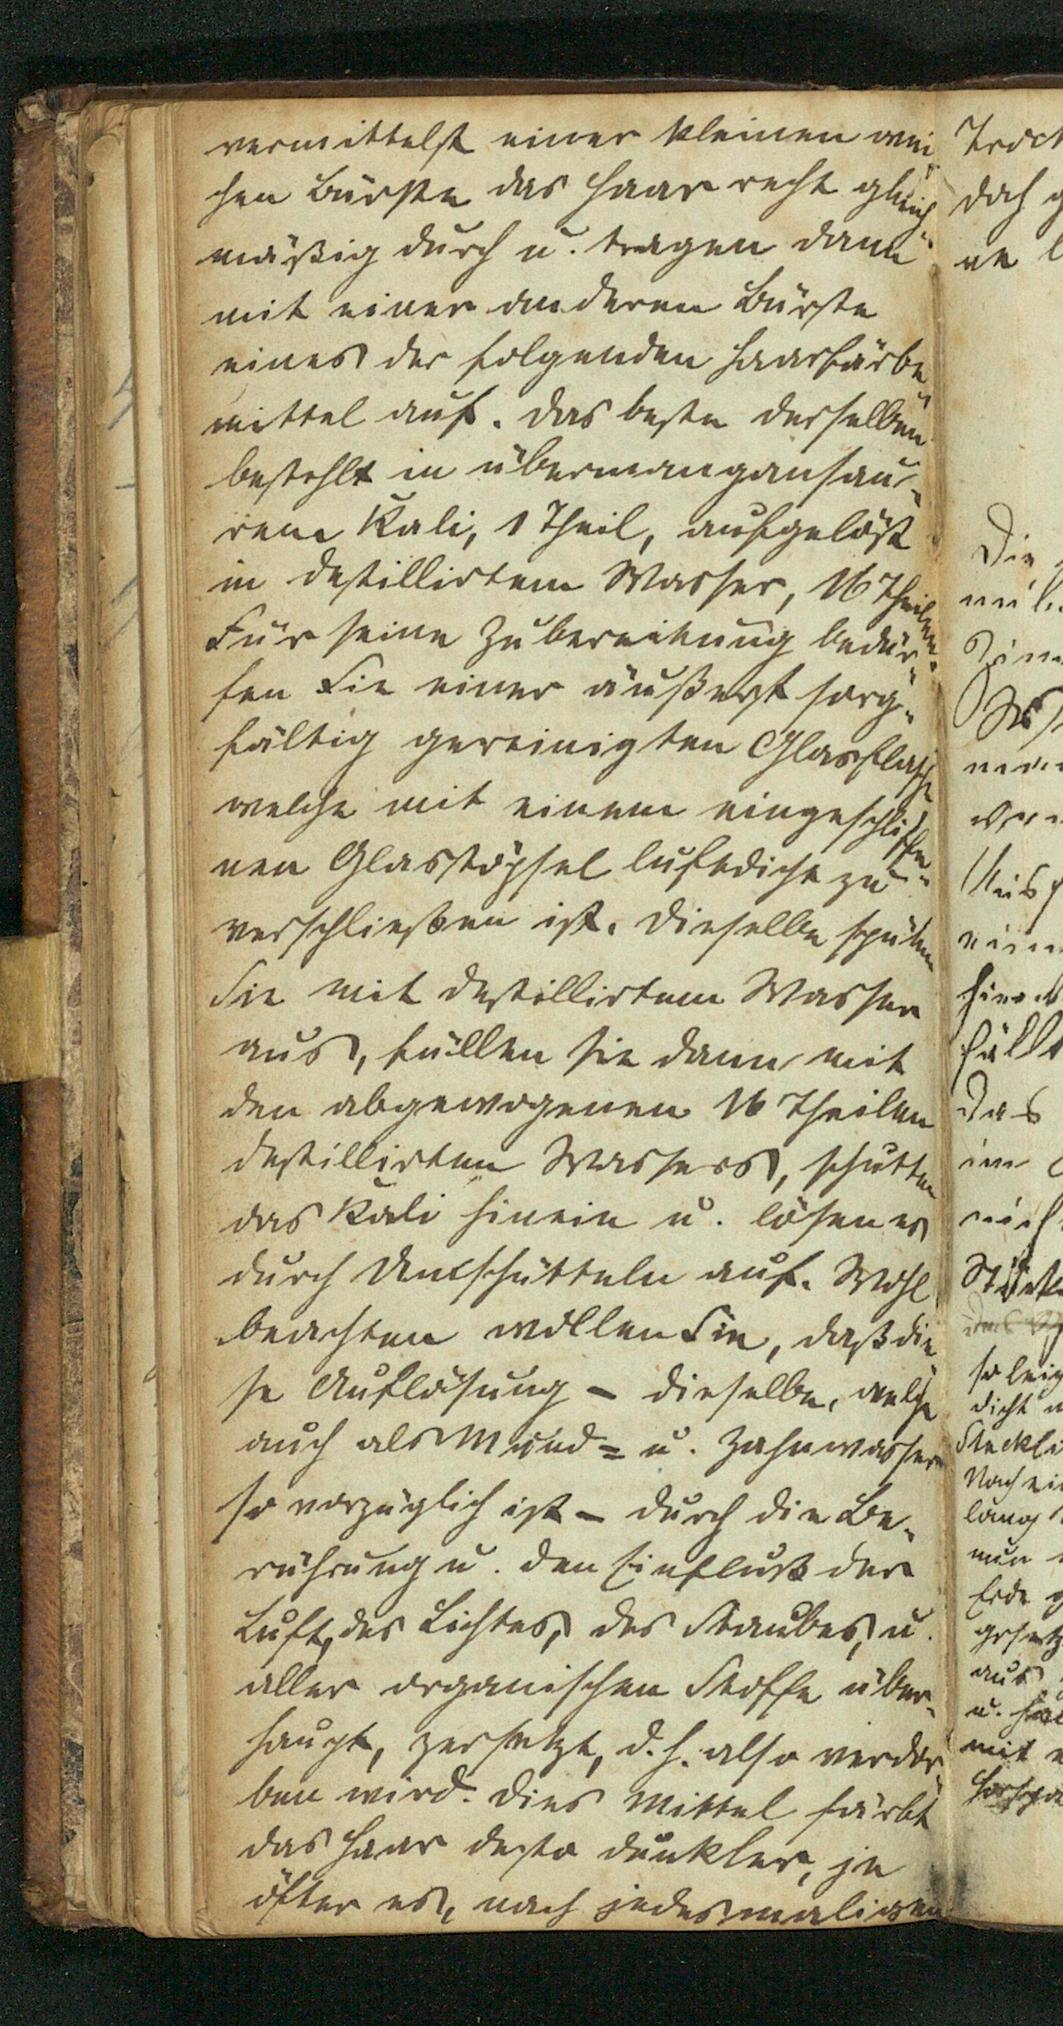 vermittelst einer kleinen wei-
chen Bürste das Haar recht gleich-
mäßig durch u. tragen dann
mit einer anderen Bürste
eines der folgenden Haarfärbe-
mittel auf. Das beste derselben
besteht in übermangansau-
rem Kali, 1 Theil, aufgelöst
in destillirtem Wasser, 16 Theilen.
Für seine Zubereitung bedür-
fen Sie einer äußerst sorg-
fältig gereinigten Glasflasche
welche mit einem eingeschliffe-
nen Glasstöpsel luftdicht zu
verschließen ist. Dieselbe spülen
Sie mit destillirtem Wasser
aus, füllen sie dann mit
den abgewogenen 16 Theilen
destillirten Wassers, schütten
das Kali hinein u. lösen es
durch Umschütteln auf. Wohl
beachten wollen Sie, daß die-
se Auflösung – dieselbe, welche
auch als Mund= u. Zahnwasser
so vorzüglich ist – durch die Be-
rührung u. den Einfluß der
Luft, des Lichtes, des Staubes, u.
aller organischen Stoffe über-
haupt, zersetzt, d. h. also verdor-
ben wird. Dies Mittel färbt
das Haar desto dunkler, je
öfter es, nach jedesmaligem
doch
Die
das
dicht
Nach
lang
nun
Erde
gesetz
aus
u.
mit